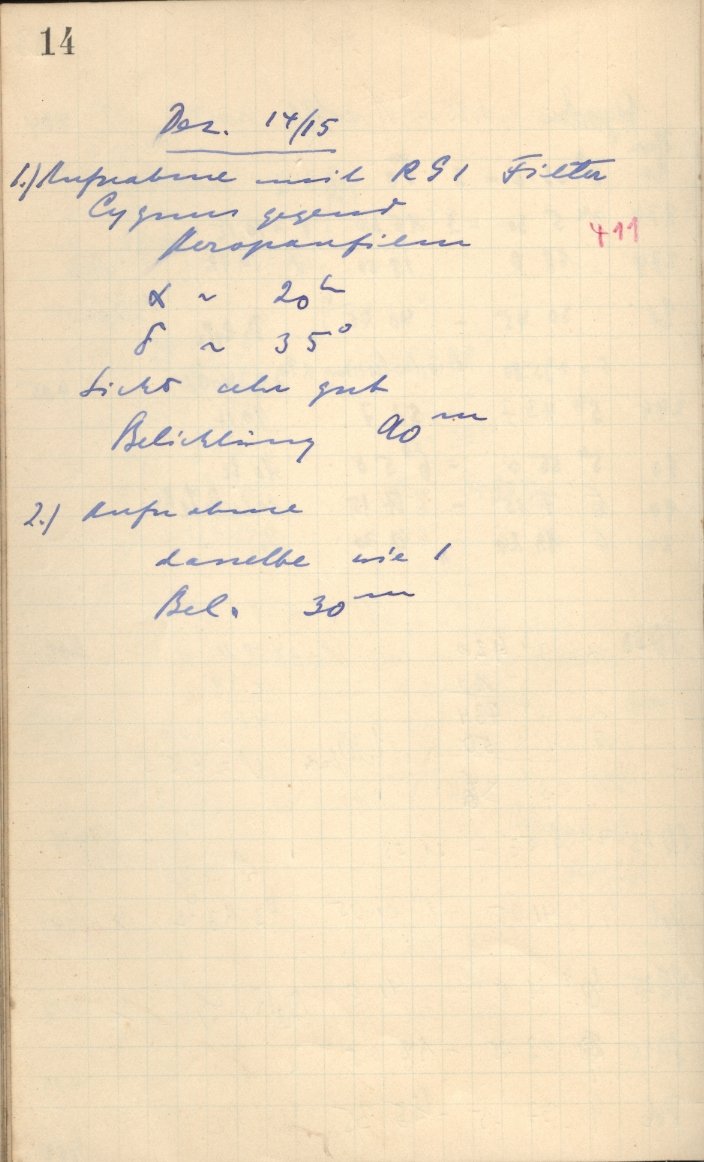 14
Dez. 14/15
1.) Aufnahme mit RG1 Filter
Cygnus gegend
411
Aeropanfilm
α ~ 20h
δ ~ 35°
Sicht sehr gut
Belichtung 90m
2.) Aufnahme
dasselbe wie 1
Bel. 30m